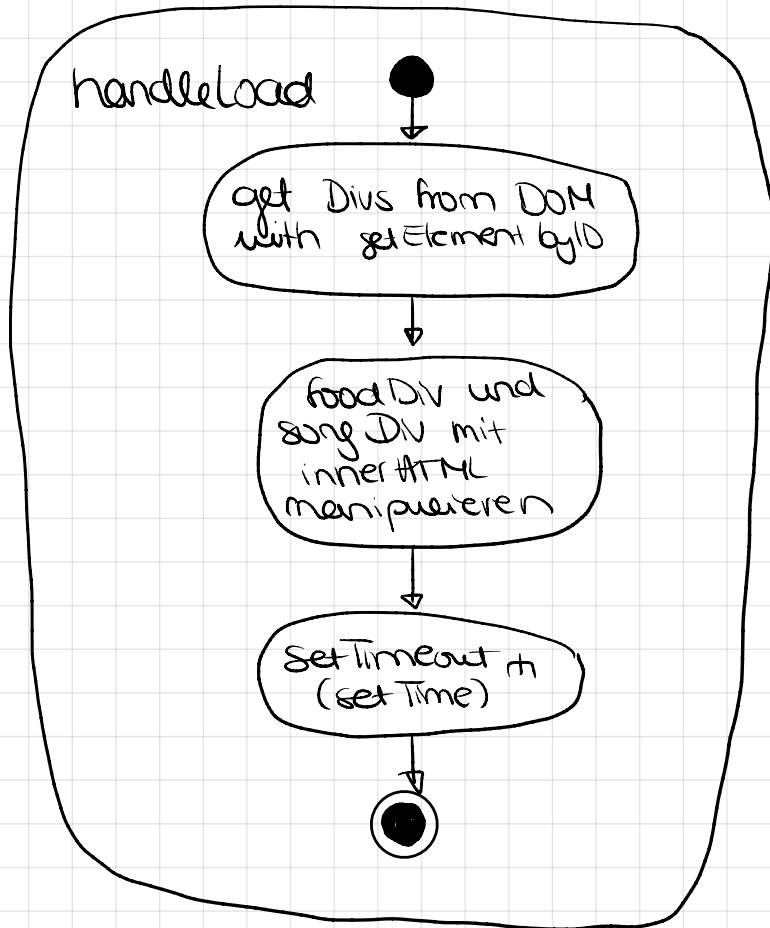 handleLoad
get Divs from DOM
with getElement byID
foodDiv und
song Div mit
innerHTML
manipulieren
setTimeout
(setTime)